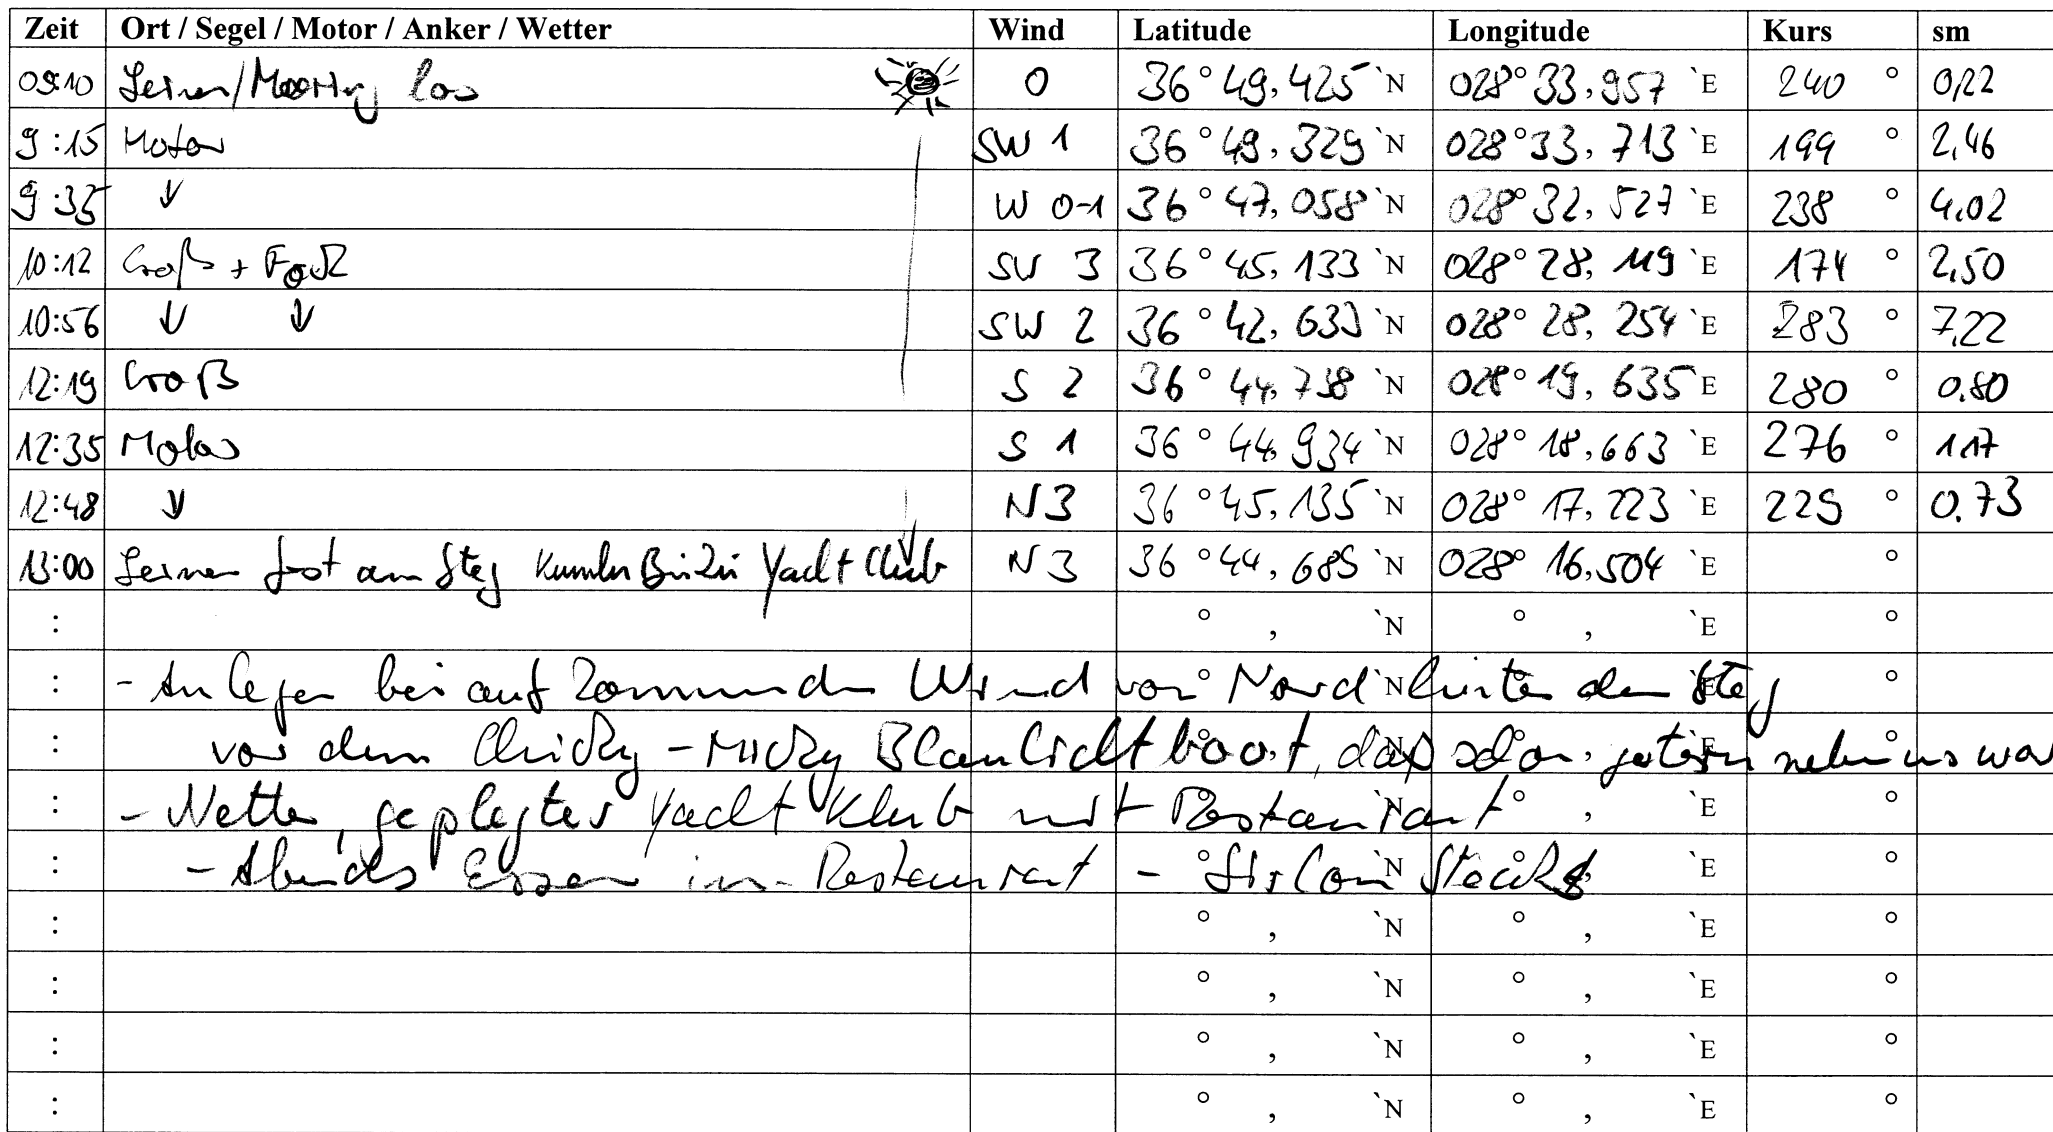 Zeit Ort / Segel / Motor / Anker / Wetter Wind Latitude Longitude Kurs sm
09:10 Leinen/Mooring los 0 36° 49,425 `N 028° 33,957 `E 240 ° 0,22
9:15 Motor SW 1 36° 49,329 `N 028° 33,713 `E 199 ° 2,46
9:35 ↓ W 0-1 36° 47,058 `N 028° 32,527 `E 238 ° 4,02
10:12 Groß + Fock SW 3 36° 45,133 `N 028° 28,119 `E 174 ° 2,50
10:56 ↓ ↓ SW 2 36° 42,633 `N 028° 28,254 `E 283 ° 7,22
12:19 Groß S 2 36° 44,738 `N 028° 19,635 `E 280 ° 0,80
12:35 Motor S 1 36° 44,934 `N 028° 18,663 `E 276 ° 1,17
12:48 ↓ N 3 36° 45,135 `N 028° 17,223 `E 229 ° 0,73
13:00 Leinen fest am Steg Yacht Club N 3 36° 44,685 `N 028° 16,504 `E °
: ° , `N ° , `E °
: - Anlegen bei auf kommenden Wind von Nord hinter dem Steg °
: vor dem Chicky-Micky Blaulichtboot, das schon gestern neben uns war °
: - Netter, gepflegter Yacht Klub mit Restaurant , `E °
: - Abends Essen im Restaurant - Sirloin Steaks `E °
: ° , `N ° , `E °
: ° , `N ° , `E °
: ° , `N ° , `E °
: ° , `N ° , `E °